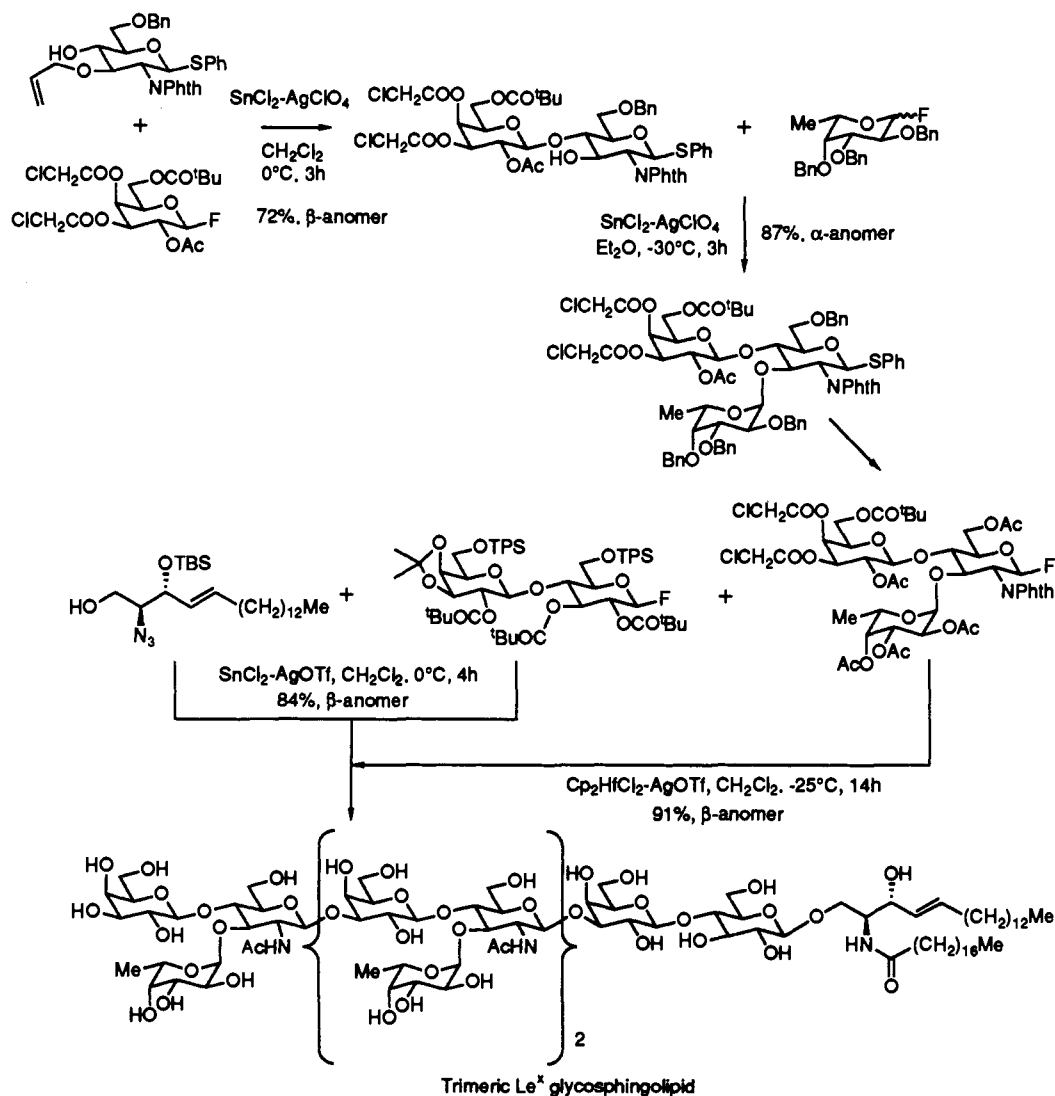 OBn
HO
O
SPh
O
NPhth
SnCl2-AgClO4
+
CH2Cl2
0°C, 3h
ClCH2COO
OCOtBu
ClCH2COO
O
F
OAc
72%, β-anomer
ClCH2COO
OCOtBu
OBn
ClCH2COO
O
O
O
SPh
OAc
HO
NPhth
+
Me
O
F
OBn
OBn
BnO
SnCl2-AgClO4
Et2O, -30°C, 3h
87%, α-anomer
ClCH2COO
OCOtBu
OBn
ClCH2COO
O
O
O
SPh
OAc
O
NPhth
Me
O
OBn
OBn
BnO
OTBS
HO
(CH2)12Me
N3
+
O
OTPS
O
O
O
OTPS
O
F
tBuOCO
tBuOCO
OCOtBu
+
ClCH2COO
OCOtBu
OAc
ClCH2COO
O
O
O
F
OAc
O
NPhth
Me
O
OAc
OAc
AcO
SnCl2-AgOTf, CH2Cl2, 0°C, 4h
84%, β-anomer
Cp2HfCl2-AgOTf, CH2Cl2, -25°C, 14h
91%, β-anomer
OH
OH
OH
HO
O
O
O
O
OH
O
AcHN
Me
O
OH
OH
OH
OH
OH
OH
O
O
O
O
OH
O
AcHN
Me
O
OH
OH
OH
2
OH
OH
OH
O
O
O
O
O
OH
HO
OH
OH
(CH2)12Me
HN
(CH2)16Me
O
Trimeric Lex glycosphingolipid